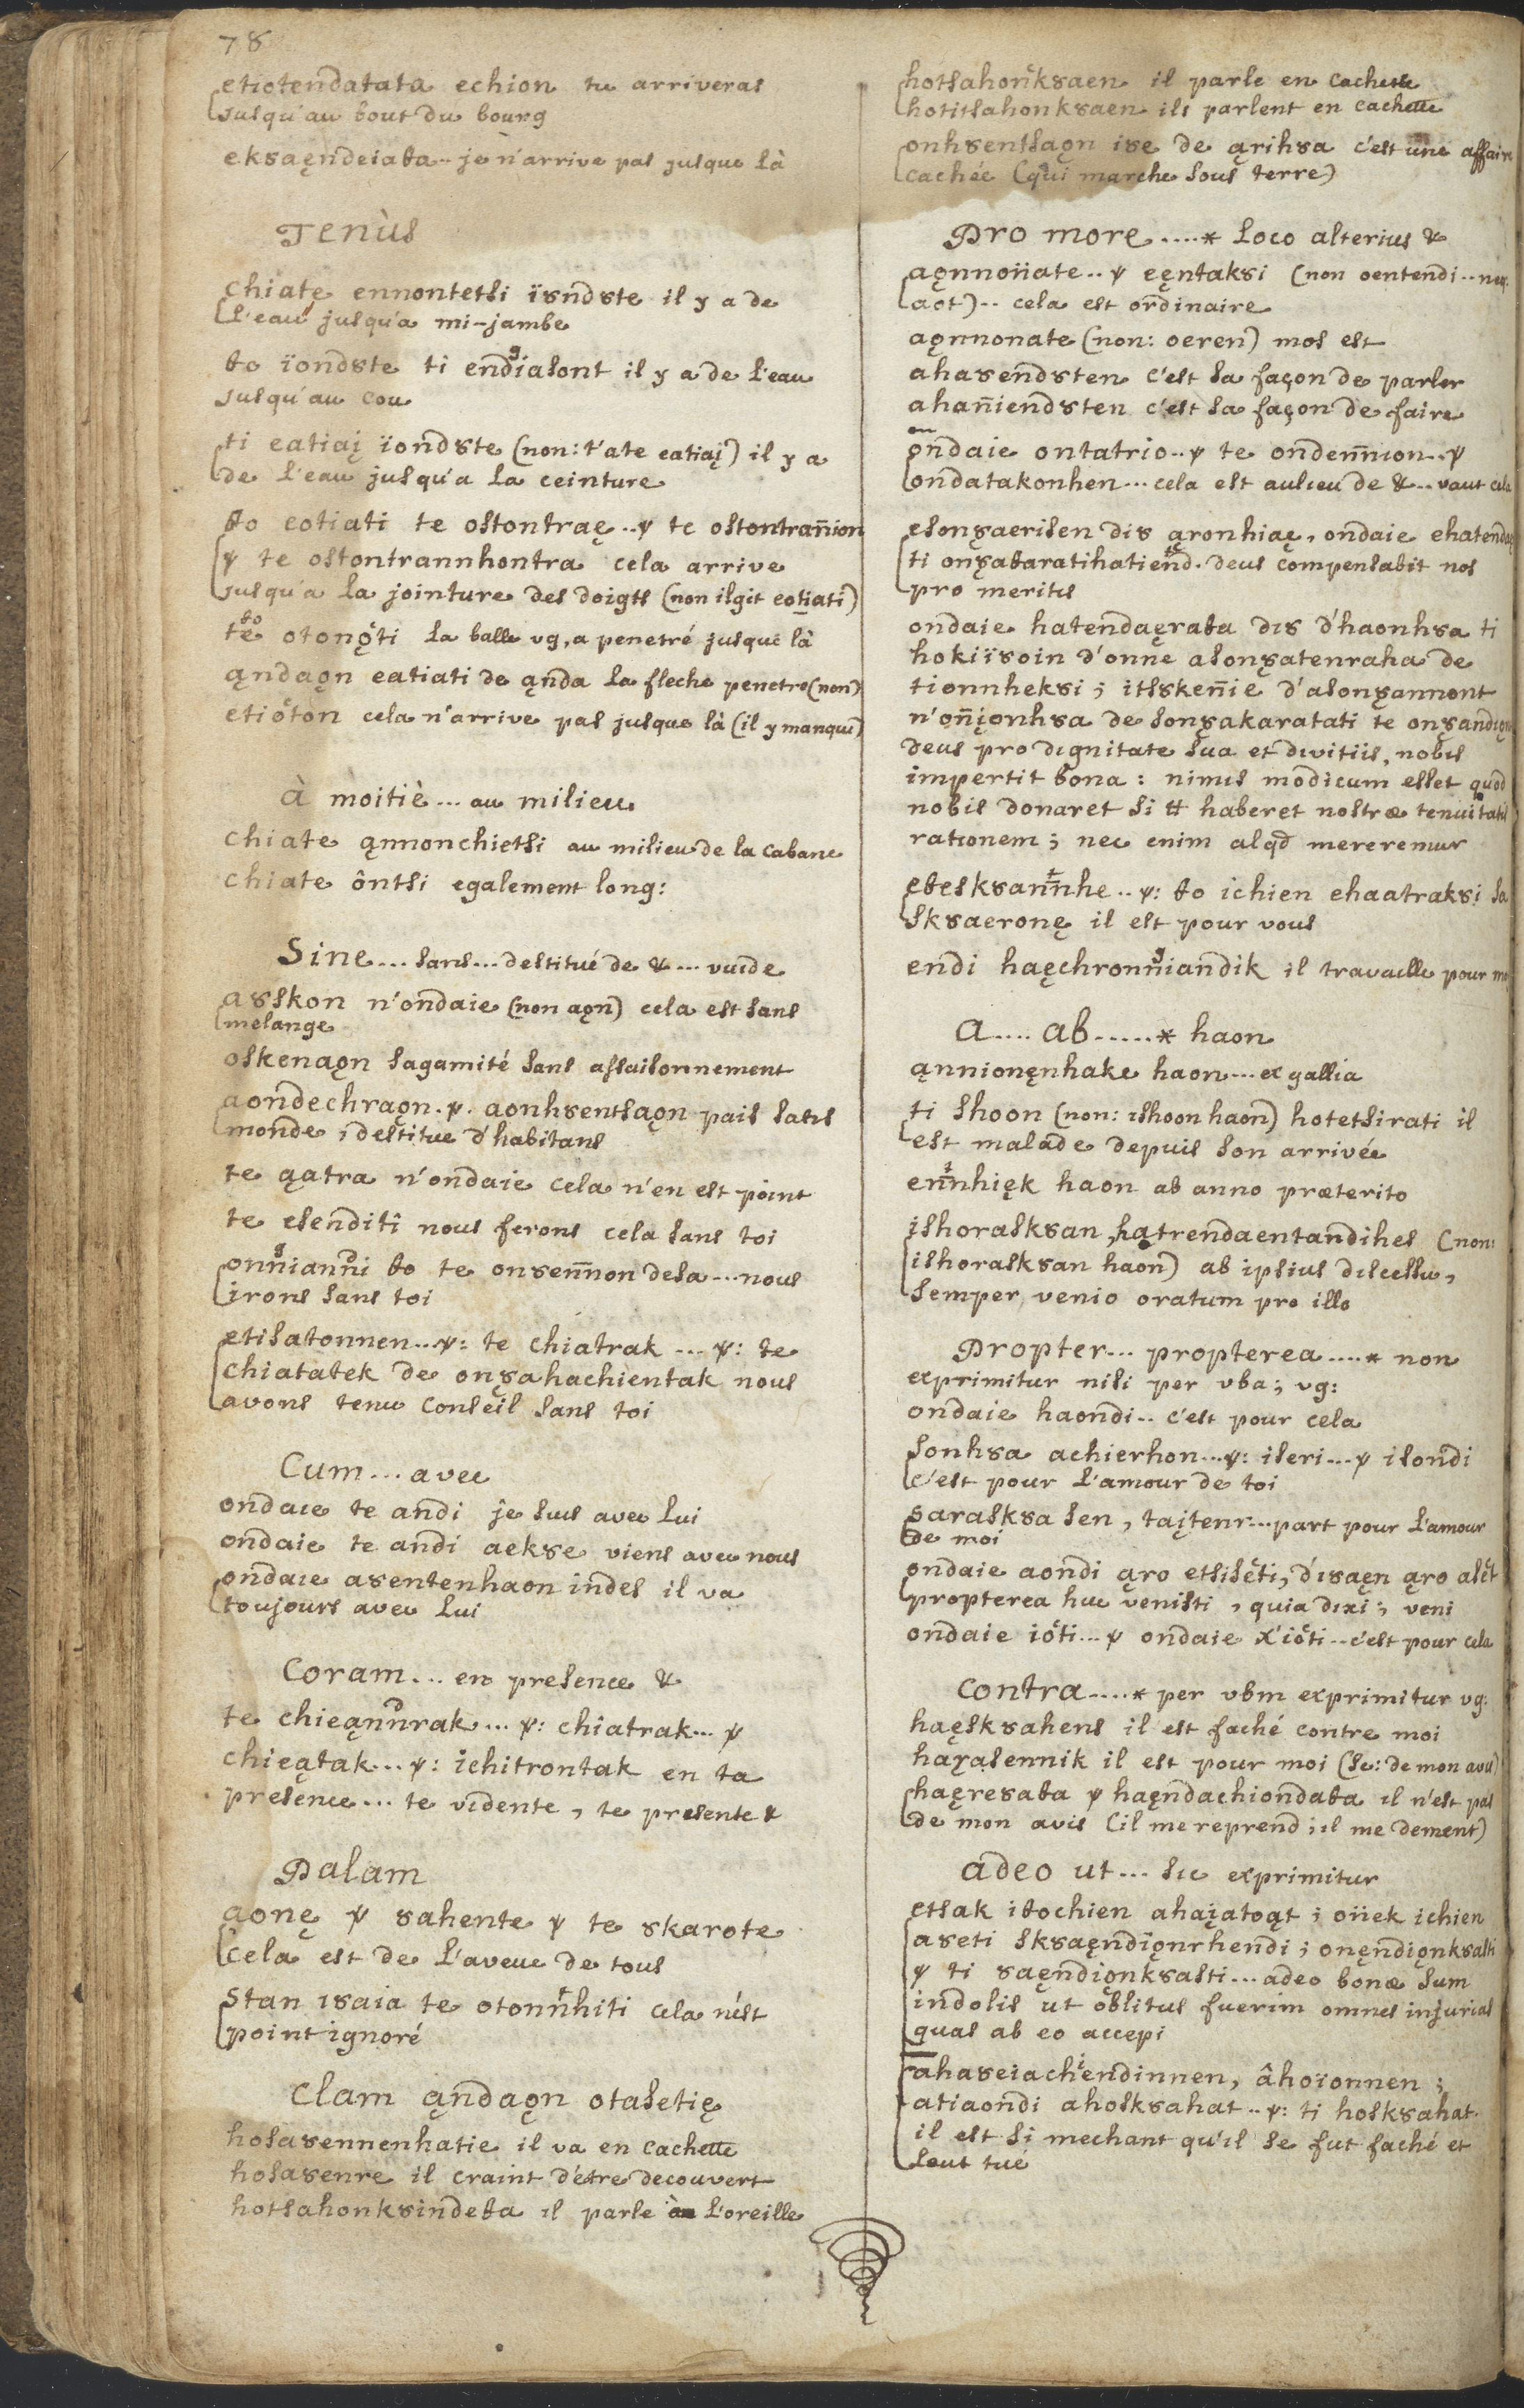 78
etiotendatata echion tu arriveras
jusqu'au bout du bourg
ekȣaęndeiaθa.. je n'arrive pas jusque là
Tenùs
chiatę ennontetsi ïȣndȣte il y a de
l'eau jusqu'a mi-jambe
θo ïondȣte ti endiasont il y a de l'eau
jusqu'au cou
ti eatiaį ïondȣte (non: t'ate eatiaį) il y a
de l'eau jusqu'a la ceinture
θo eotiati te ostontraę..ψ te ostontrañion
ψ te ostontrannhontra cela arrive
jusqu'a la jointure des doigts (non ilgit eotiati)
te otonǫti la balle vg, a penetré jusque là
ąndaǫn eatiati de ąnda la fleche penetre (non)
etiöton cela n'arrive pas jusque là (il y manque)
à moitiè ... au milieu
chiate ąnnonchietsi au milieu de la cabane
chiate ôntsi egalement long:
Sine ... sans ... destitué de & ... vuide
aȣskon n'ondaie (non aǫn) cela est sans
melange
oskenaǫn sagamité sans assaisonnement
aondechraǫn .ψ. aonhȣentsaǫn païs sans
monde, destitue d'habitans
te ąatra n'ondaie cela n'en est point
te esenditi nous ferons cela sans toi
onnianni θo te onȣennon desa ... nous
irons sans toi
etisatonnen...ψ: te chiatrak ... ψ: te
chiatatek de onȣahachientak nous
avons tenu conseil sans toi
Cum ... avec
ondaie te andi je suis avec lui
ondaie te andi aekȣe viens avec nous
ondaie aȣentenhaon indes il va
toujours avec lui
Coram ... en presence &
te chieąnnrak ... ψ: chiatrak ... ψ
chieątak ... ψ: ichitrontak en ta
presence ... te vidente, te presente &
Palam
ąonę ψ ȣahente ψ te skarote
cela est de l'aveue de tous
stan iȣaia te otonnhiti cela n'est
point ignoré
Clam ąndaǫn otasetię
hosaȣennenhatie il va en cachette
hosaȣenre il craint d'étre decouvert
hotsahonkȣindeθa il parle à l'oreille
hotsahonkȣaen il parle en cachette
hotitsahonkȣaen ils parlent en cachette
onhȣentsaǫn iȣe de ąrihȣa c'est une affaire
cachée (qui marche sous terre)
Pro more ....* loco alterius &
aǫnnonate .. ψ eęntakȣi (non oentendi..
aot) .. cela est ordinaire
aǫnnonate (non: oeren) mos est
ahaȣendȣten c'est sa façon de parler
ahañiendȣten c'est sa façon de faire
ondaie ontatrio .. ψ te ondennion .. ψ
ondatakonhen ... cela est aulieu de & .. vaut cela
esonȣaerisen diȣ ąronhiaę, ondaie
ti onȣaθaratihatiend. deus compensabit nos
pro meritis
ondaie hatendaęraθa diȣ d'haonhȣa ti
hokiïȣoin d'onne asonȣatenraha de
tionnhekȣi ; itsȣkeñie d'asonȣannont
n'oñįonhȣa de sonȣakaratati te
deus pro dignitate sua et divitiis, nobis
impertit bona : nimis modicum esset quod
nobis donaret si tt haberet nostræ tenuitatis
rationem ; nec enim alqd mereremur
eθeskȣannhe .. ψ: θo ichien ehaatrakȣi sa
skȣaeronę il est pour vous
endi haęchronniandik il travaille pour
A .... ab ......* haon
ąnnionęnhake haon ... ex gallia
ti shoon (non: ishoon haon) hotetsirati il
est malade depuis son arrivée
ennhięk haon ab anno præterito
ishoraskȣan, hątrendaentandihes (non:
ishoraskȣan haon) ab ipsius discessu,
semper venio oratum pro illo
Propter ... propterea ....* non
exprimitur nisi per vba ; vg:
ondaie haondi .. c'est pour cela
sonhȣa achierhon ... ψ: iseri ... ψ isondi
c'est pour l'amour de toi
ȣaraskȣa sen, taįtenr ... part pour l'amour
de moi
ondaie aondi ąro etsisęti, d'iȣaęn ąro
propterea huc venisti, quia dixi ; veni
ondaie iöti ... ψ ondaie x'iöti .. c'est pour cela
contra ....* per vbm exprimitur vg:
haęskȣahens il est faché contre moi
haxasennik il est pour moi (sc: de mon avis)
haęreȣaθa ψ haęndachiondaθa il n'est pas
de mon avis (il me reprend ; il me dement)
adeo ut ... sic exprimitur
etsak iθochien ahaįatoąt ; onek ichien
aȣeti skȣaęndiǫnrhendi ; onęndiǫnkȣasti
ψ ti ȣaęndiǫnkȣasti ... adeo bonæ sum
indolis ut oblitus fuerim omnes injurias
quas ab eo accepi
ahaȣeiachendinnen, âhoïonnen ;
atiaondi ahoskȣahat .. ψ: ti hoskȣahat.
il est si mechant qu'il se fut faché et
l'eut tué